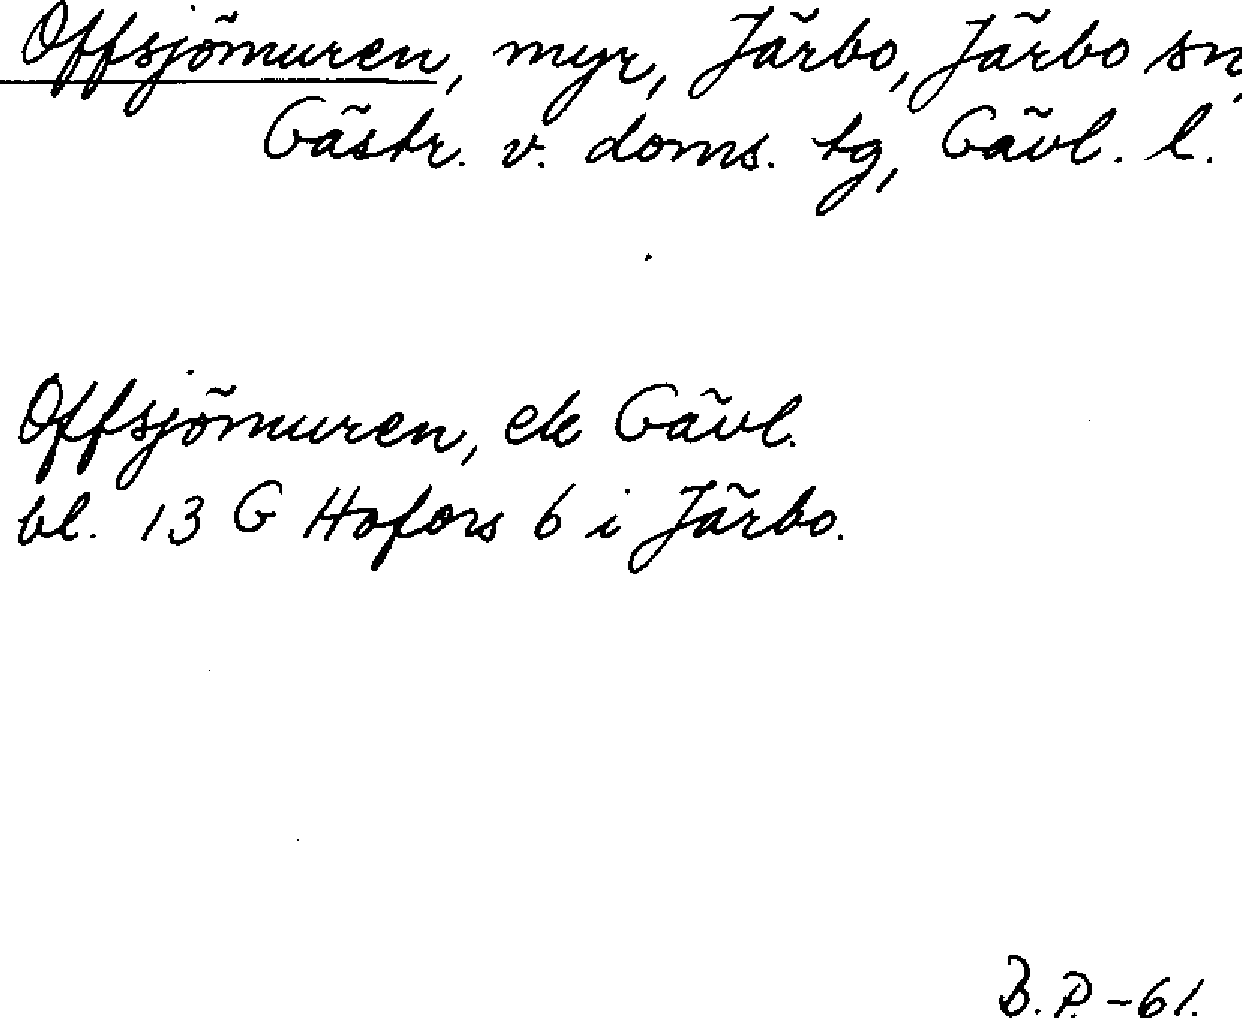 Offsjömuren, myr, Järbo, Järbo sn,
Gästr. v. doms. tg, Gävl. l.
Offsjömuren, ek Gävl.
bl. 13 G Hofors 6 i Järbo.
B.P. -61.